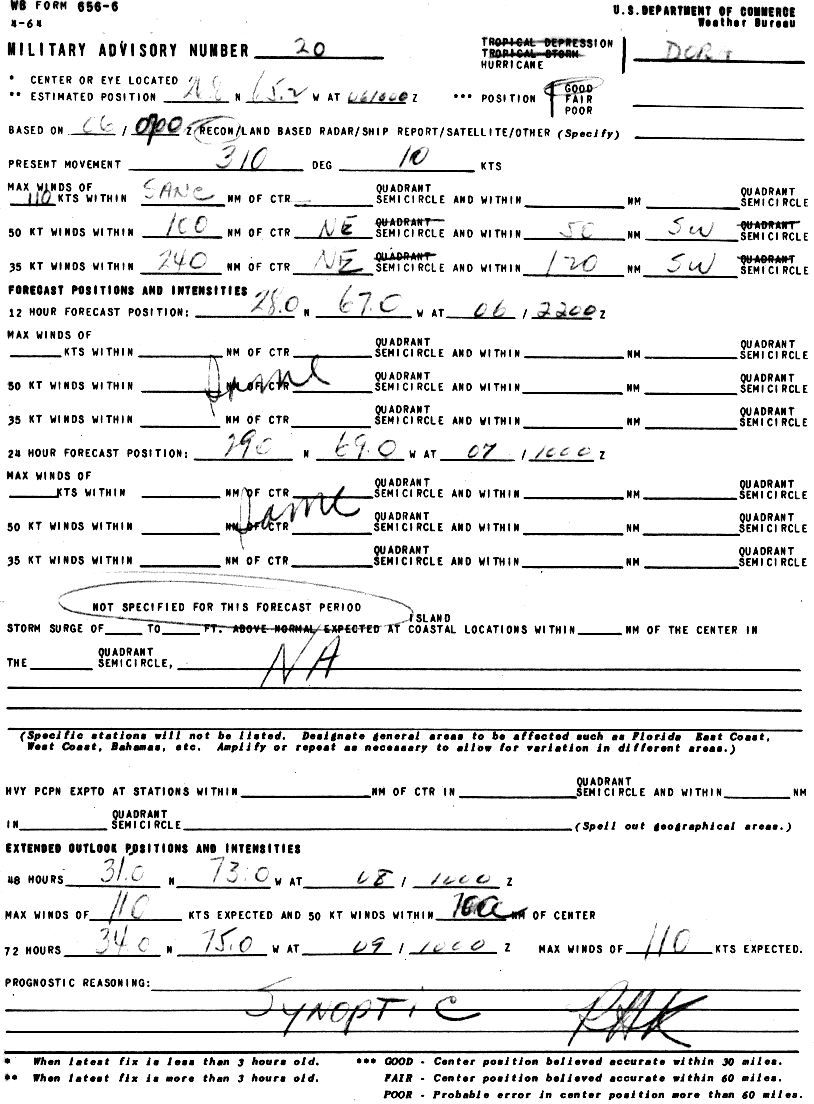 WB FORM 656-6
4-64
U.S. DEPARTMENT OF COMMERCE
Weather Bureau
MILITARY ADVISORY NUMBER 20
TROPICAL DEPRESSION
TROPICAL STORM
HURRICANE DORA
* CENTER OR EYE LOCATED
** ESTIMATED POSITION N 65.2 W AT 06/1000 Z *** POSITION GOOD
FAIR
POOR
BASED ON 06 / Z RECON/LAND BASED RADAR/SHIP REPORT/SATELLITE/OTHER (Specify)
PRESENT MOVEMENT 310 DEG 10 KTS
MAX WINDS OF QUADRANT QUADRANT
110 KTS WITHIN SAME NM OF CTR SEMICIRCLE AND WITHIN NM SEMICIRCLE
QUADRANT QUADRANT
50 KT WINDS WITHIN 100 NM OF CTR NE SEMICIRCLE AND WITHIN 50 NM SW SEMICIRCLE
QUADRANT QUADRANT
35 KT WINDS WITHIN 240 NM OF CTR NE SEMICIRCLE AND WITHIN 120 NM SW SEMICIRCLE
FORECAST POSITIONS AND INTENSITIES
12 HOUR FORECAST POSITION: 28.0 N 67.0 W AT 06 / 2200 Z
MAX WINDS OF QUADRANT QUADRANT
KTS WITHIN NM OF CTR SEMICIRCLE AND WITHIN NM SEMICIRCLE
Same
QUADRANT QUADRANT
50 KT WINDS WITHIN NM OF CTR SEMICIRCLE AND WITHIN NM SEMICIRCLE
QUADRANT QUADRANT
35 KT WINDS WITHIN NM OF CTR SEMICIRCLE AND WITHIN NM SEMICIRCLE
24 HOUR FORECAST POSITION: 29.0 N 69.0 W AT 07 / 1000 Z
MAX WINDS OF QUADRANT QUADRANT
KTS WITHIN NM OF CTR SEMICIRCLE AND WITHIN NM SEMICIRCLE
Same
QUADRANT QUADRANT
50 KT WINDS WITHIN NM OF CTR SEMICIRCLE AND WITHIN NM SEMICIRCLE
QUADRANT QUADRANT
35 KT WINDS WITHIN NM OF CTR SEMICIRCLE AND WITHIN NM SEMICIRCLE
NOT SPECIFIED FOR THIS FORECAST PERIOD
ISLAND
STORM SURGE OF TO FT. ABOVE NORMAL EXPECTED AT COASTAL LOCATIONS WITHIN NM OF THE CENTER IN
QUADRANT
THE SEMICIRCLE, NA
(Specific stations will not be listed. Designate general areas to be affected such as Florida East Coast,
West Coast, Bahamas, etc. Amplify or repeat as necessary to allow for variation in different areas.)
QUADRANT
HVY PCPN EXPTD AT STATIONS WITHIN NM OF CTR IN SEMICIRCLE AND WITHIN NM
QUADRANT
IN SEMICIRCLE (Spell out geographical areas.)
EXTENDED OUTLOOK POSITIONS AND INTENSITIES
48 HOURS 31.0 N 73.0 W AT 08 / 1000 Z
MAX WINDS OF 110 KTS EXPECTED AND 50 KT WINDS WITHIN 100 NM OF CENTER
72 HOURS 34.0 N 75.0 W AT 09 / 1000 Z MAX WINDS OF 110 KTS EXPECTED.
PROGNOSTIC REASONING:
SYNOPTIC
* When latest fix is less than 3 hours old.
** When latest fix is more than 3 hours old.
*** GOOD - Center position believed accurate within 30 miles.
FAIR - Center position believed accurate within 60 miles.
POOR - Probable error in center position more than 60 miles.